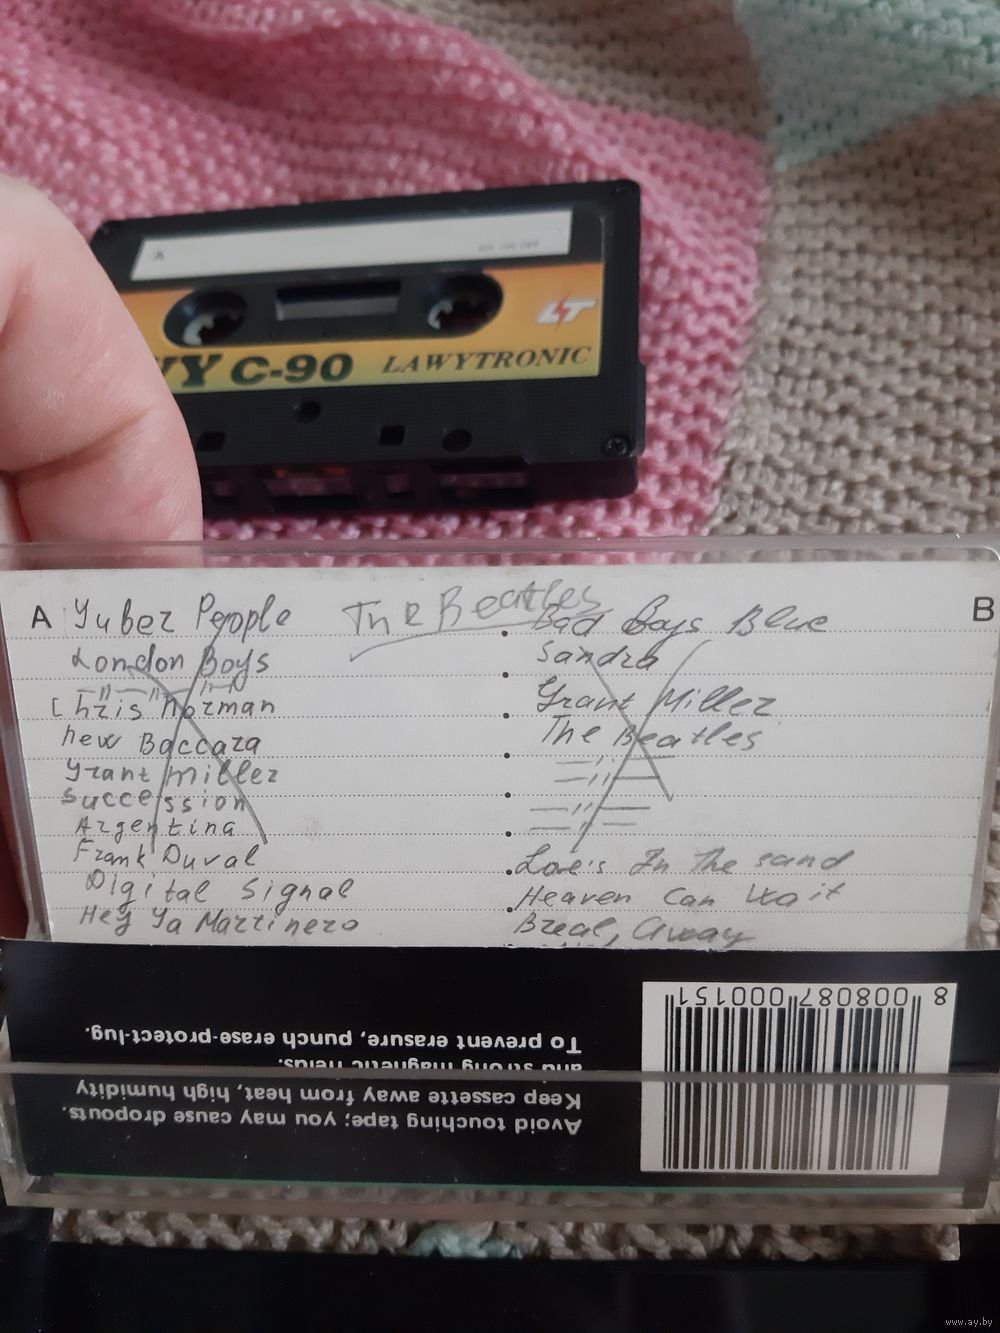 A
LT
VY C-90 LAWYTRONIC
A
B
The Beatles
Yuber People
London Boys
—〃—〃— 〃—
Chris Norman
new Baccara
grant miller
Succession
Argentina
Frank Duval
Digital Signal
Hey Ya Martinero
Bad Boys Blue
Sandra
Grant Miller
The Beatles
—〃—
—〃—
Love's In The sand
Heaven Can Wait
Breal, Away
8 008087 000151
Avoid touching tape; you may cause dropouts.
Keep cassette away from heat, high humidity
and strong magnetic fields.
To prevent erasure, punch erase-protect-lug.
www.ay.by